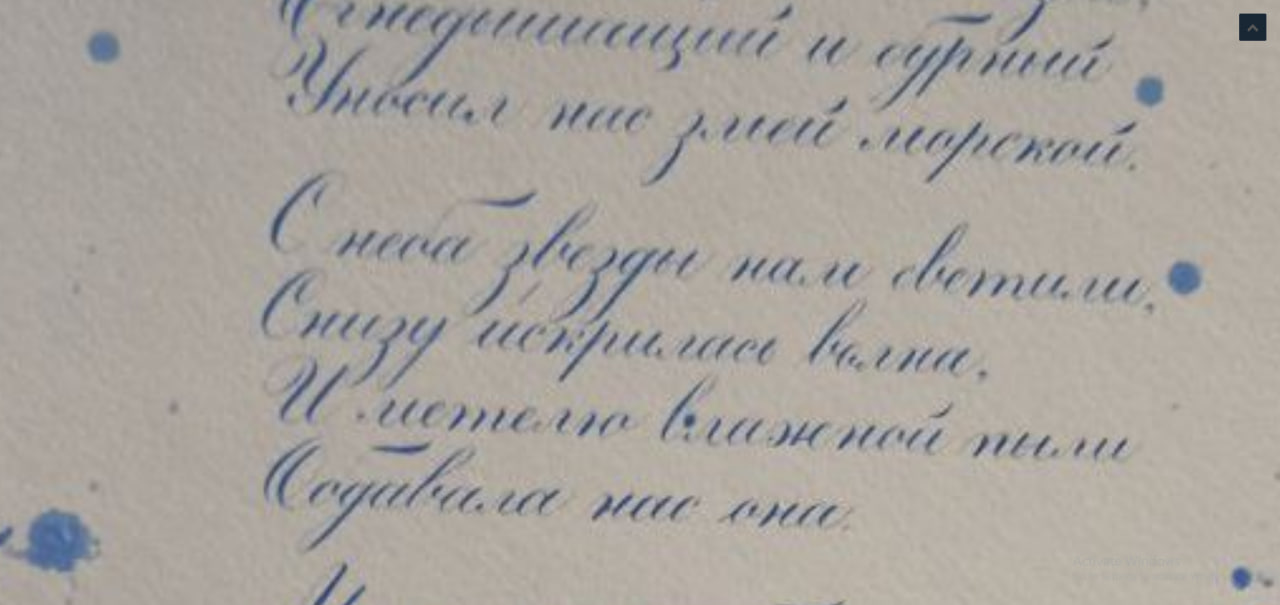 Огнедышащий и бурный
Уносил нас змей морской.
С неба звезды нам светили,
Снизу искрилась волна,
И метелью влажной пыли
Обдавала нас она.
Activate Windows